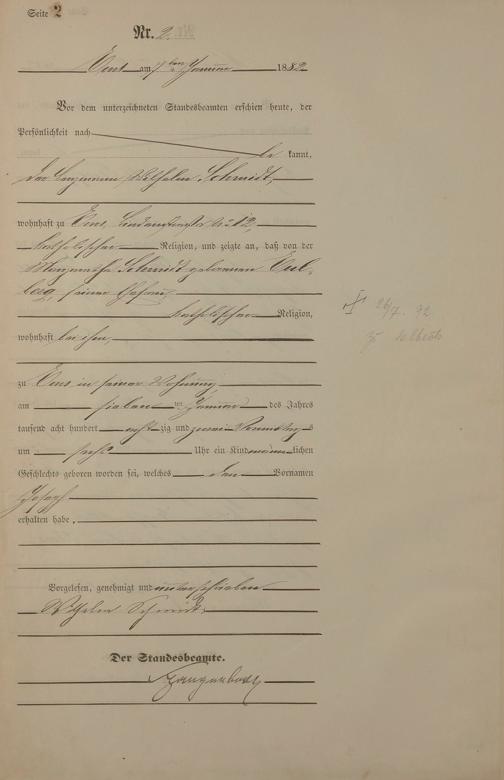 Seite 2
Nr. 2.
Ems am 7ten Januar 1882
Vor dem unterzeichneten Standesbeamten erschien heute, der
Persönlichkeit nach
be kannt,
der Wilhelm Schmidt,
wohnhaft zu Ems, 12,
katholischer Religion, und zeigte an, daß von der
Margaretha Schmidt geborenen
seiner Ehefrau
katholischer Religion,
wohnhaft bei ihm,
zu Ems in seiner Wohnung
am sieben ten Januar des Jahres
tausend acht hundert acht zig und zwei Vormittags
um sechs Uhr ein Kind männ lichen
Geschlechts geboren worden sei, welches den Vornamen
Joseph
erhalten habe.
Vorgelesen, genehmigt und unterschrieben
Wilhelm Schmidt.
Der Standesbeamte.